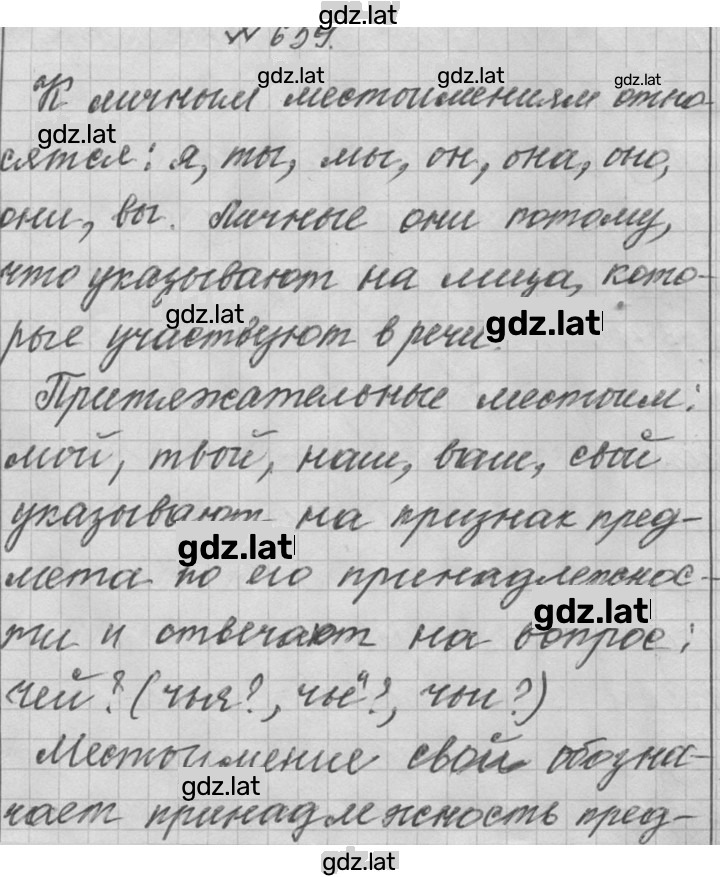 gdz.lat
№ 659.
gdz.lat gdz.lat gdz.lat
К личным местоимениям отно-
gdz.lat
сятся: я, ты, мы, он, она, оно,
они, вы. Личные они потому,
что указывают на лица, кото-
gdz.lat gdz.lat
рые участвуют в речи.
Притяжательные местоим:
мой, твой, наш, ваш, свой
указывают на признак пред-
gdz.lat
мета по его принадлежнос-
gdz.lat
ти и отвечают на вопрос:
чей? (чья?, чьё?, чьи?)
Местоимение свой обозна-
gdz.lat
чает принадлежность пред-
gdz.lat